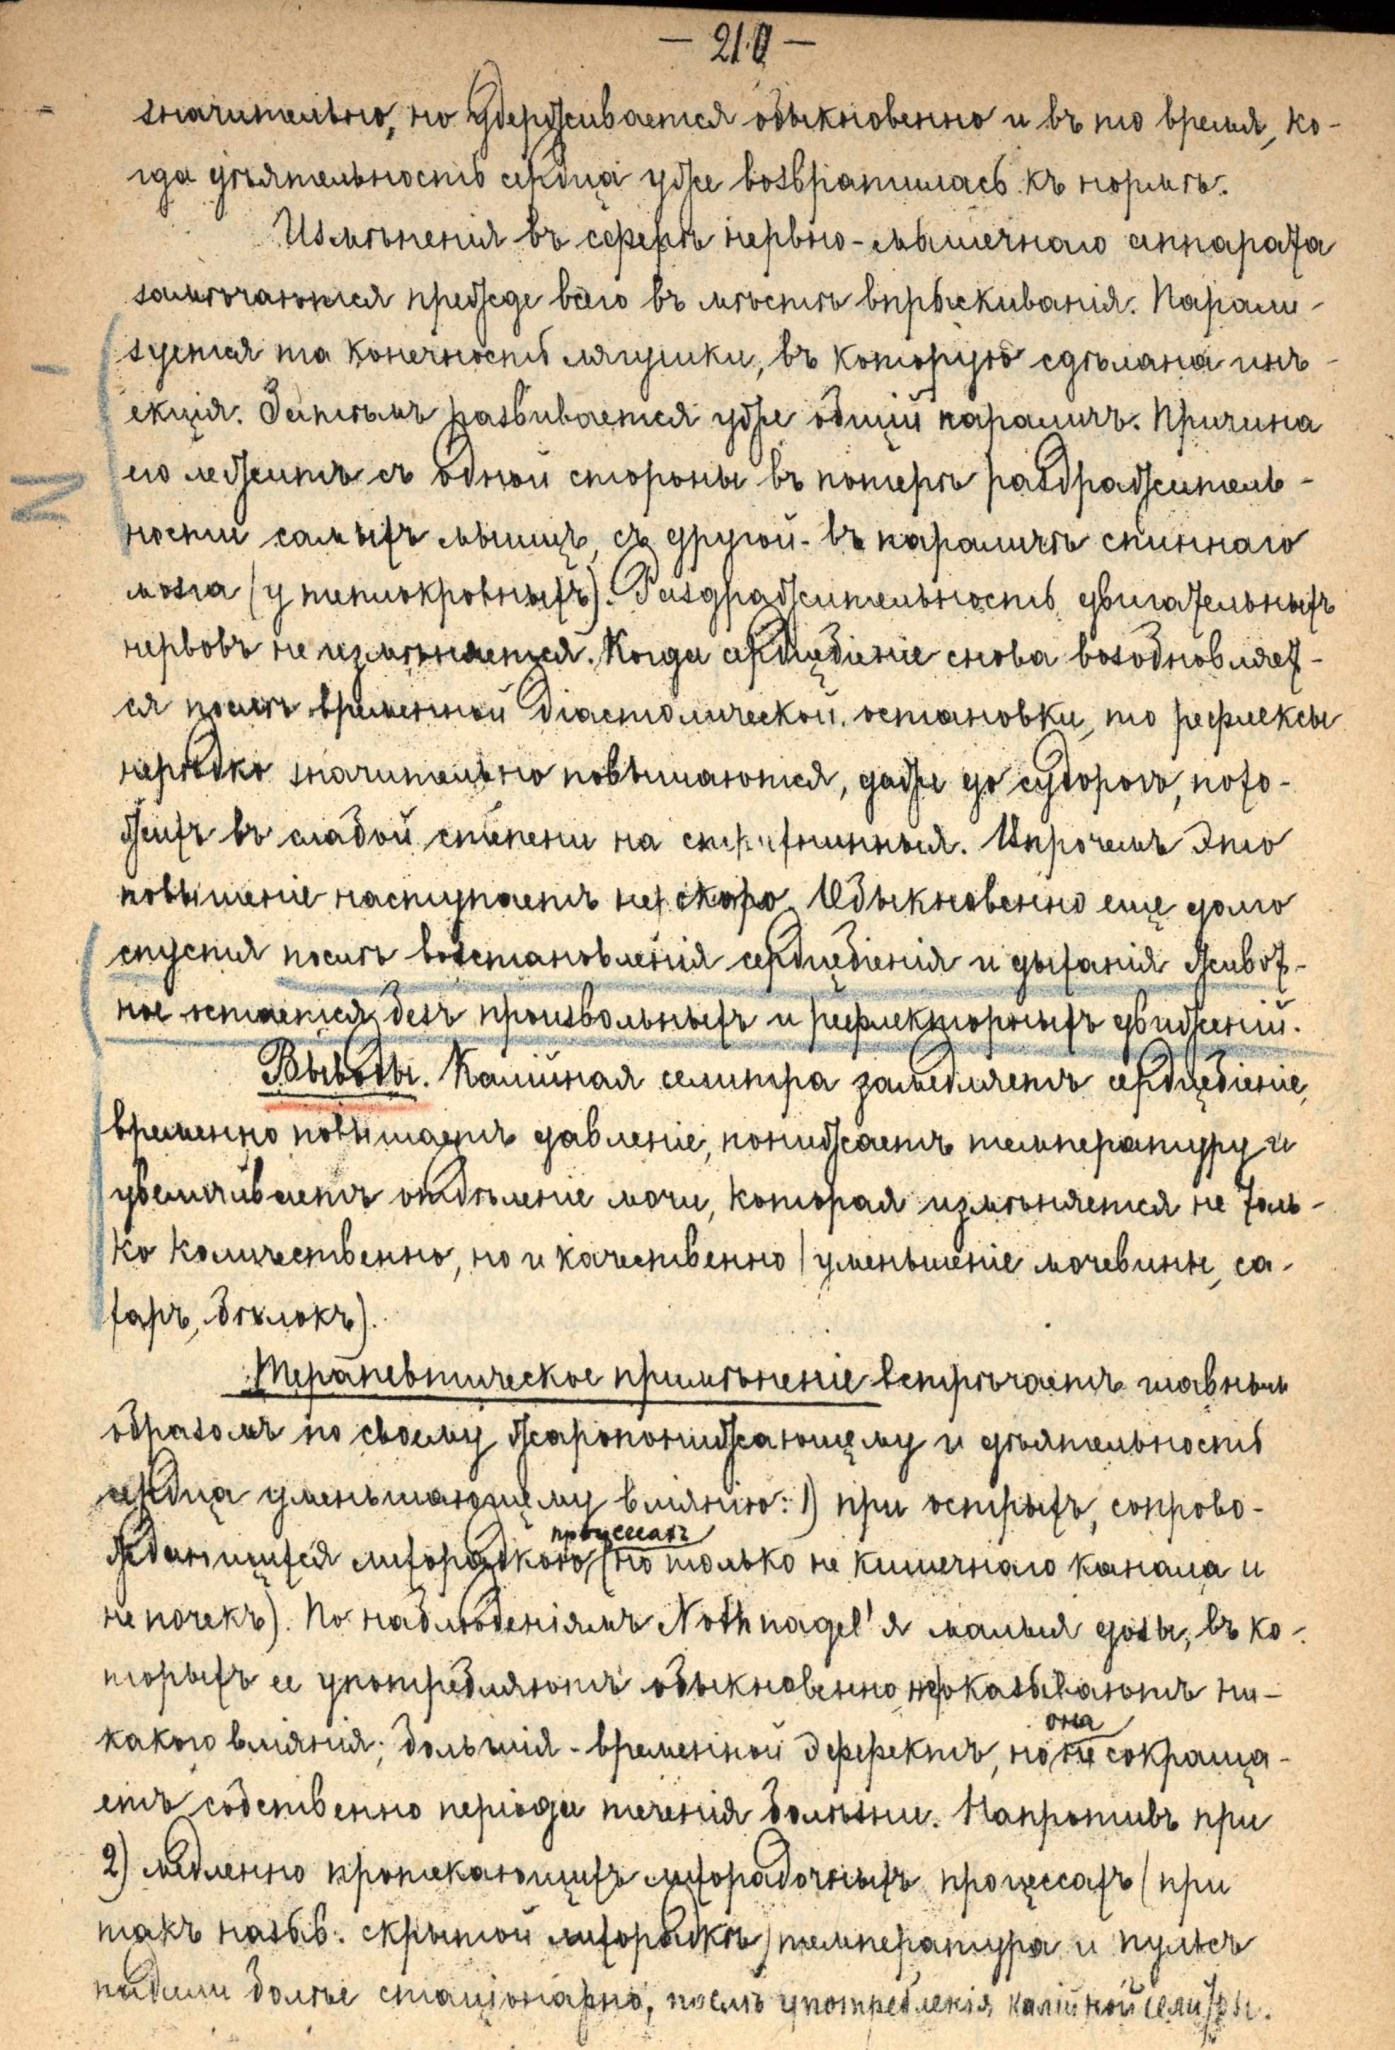 — 210 —
значительно, но удерживается обыкновенно и въ то время, ко-
гда дѣятельность сердца уже возвратилась къ нормѣ.
Измѣненія въ сферѣ нервно-мышечнаго аппарата
замѣчаются прежде всего въ мѣстѣ впрыскиванія. Парали-
зуется та конечность лягушки, въ которую сдѣлана инъ-
екція. Затѣмъ развивается уже общій параличъ. Причина
его лежитъ съ одной стороны въ потерѣ раздражитель-
ности самыхъ мышцъ, съ другой - въ параличѣ спиннаго
мозга (у теплокровныхъ). Раздражительность двигательныхъ
нервовъ не измѣняется. Когда сердцебіеніе снова возобновляет-
ся послѣ временной діастолической остановки, то рефлексы
нерѣдко значительно повышаются, даже до судорогъ, похо-
жихъ въ слабой степени на стрихнинныя. Впрочемъ это
повышеніе наступаетъ не скоро. Обыкновенно еще долго
спустя послѣ возстановленія сердцебіенія и дыханія живот-
ное остается безъ произвольныхъ и рефлекторныхъ движеній.
Выводы. Калійная селитра замедляетъ сердцебіеніе,
временно повышаетъ давленіе, понижаетъ температуру и
увеличиваетъ отдѣленіе мочи, которая измѣняется не толь-
ко количественно, но и качественно (уменьшеніе мочевины, са-
харъ, бѣлокъ).
Терапевтическое примѣненіе встрѣчаетъ главнымъ
образомъ по своему жаропонижающему и дѣятельность
сердца уменьшающему вліянію: 1) при острыхъ, сопрово-
процессахъ
ждающихся лихорадкою, (но только не кишечнаго канала и
не почекъ). По наблюденіямъ Nothnagel'я малыя дозы, въ ко-
торыхъ ее употребляютъ обыкновенно не оказываютъ ни-
какого вліянія; большія - временной эффектъ, но
она
не сокраща-
етъ собственно періода теченія болѣзни. Напротивъ при
2) медленно протекающихъ лихорадочныхъ процессахъ (при
такъ назыв. скрытой лихорадкѣ) температура и пульсъ
падали болѣе стаціонарно, послѣ употребленія калійной селитры.